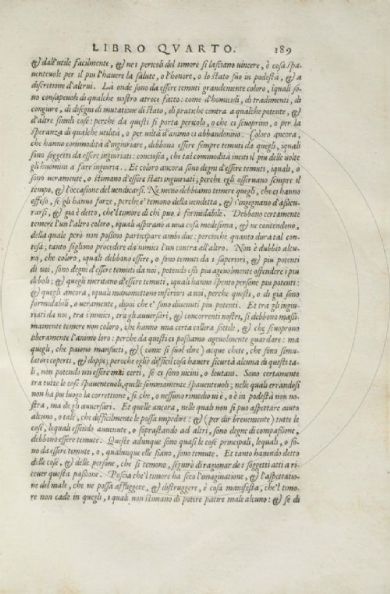 LIBRO QVARTO. 189
& dall'utile facilmente, & ne i pericoli del timore si lasciano vincere, è cosa spa-
uenteuole per il piu l'hauere la salute, o l'honore, o lo stato suo in podestà, & a
discretione d'altrui. La onde sono da essere temuti grandemente coloro, i quali so-
no consapeuoli di qualche nostro atroce fatto: come d'homicidi, di tradimenti, di
congiure, di disegni di mutatione di stato, di pratiche contra a qualche potente, & d'
altre simili cose: perche da questi si porta pericolo, o che ci scuoprino, o per la
speranza di qualche utilità, o per uiltà d'animo ci abbandonino. Coloro ancora,
che hanno commodità d'ingiuriare, debbono essere sempre temuti da quegli, iquali
sono soggetti da essere ingiuriati: conciosia, che tal commodità inuiti il piu delle uolte
gli huomini a fare ingiuria. Et coloro ancora sono degni d'essere temuti, iquali, o
sono ueramente, o stimano d'essere stati ingiuriati; perche egli osseruano sempre il
tempo, & l'occasione del uendicarsi. Ne meno debbiamo temere quegli, che ci hanno
offeso, se gli hanno forze, perche e' temono della uendetta, & s'ingegnano d'assicu-
rarsi, & gia è detto, che'l timore di chi puo è formidabile. Debbono certamente
temere l'un l'altro coloro, iquali aspirano a una cosa medesima, & ne contendono,
della quale però non possono participare amendue: percioche quanto dura tal con-
tesa; tanto sogliono procedere da nimici l'un contra all'altro. Non è dubbio alcu-
no, che coloro, iquali debbono essere, o sono temuti da i superiori, & piu potenti
di noi, sono degni d'essere temuti da noi, potendo essi piu ageuolmente offendere i piu
deboli: & quegli meritano d'essere temuti, iquali hanno spento persone piu potenti:
& quegli ancora, iquali manomettono inferiori a noi, perche questi, o di già sono
formidabili, o ueramente, dipoi che e' sono diuenuti piu potenti. Et tra gli ingiu-
riati da noi, tra i nimici, tra gli auuersari, & concorrenti nostri, si debbono massi-
mamente temere non coloro, che hanno una certa collera sottile, & che scuoprono
liberamente l'animo loro: perche da questi ci possiamo ageuolmente guardare: ma
quegli, che paiono mansueti, & (come si suol dire) acque chete, che sono simu-
latori coperti, & doppi; perche egli è difficil cosa hauere sicurtà alcuna di questi ta-
li, non potendo noi essere mai certi, se ci sono uicini, o lontani. Sono certamente
tra tutte le cose spauenteuoli, quelle sommamente spauenteuoli; nelle quali errandosi
non ha piu luogo la correttione, sì che, o nessuno rimedio ui è, o è in podestà non no-
stra, ma de gli auuersari. Et quelle ancora, nelle quali non si puo aspettare aiuto
alcuno, o tale, che difficilmente le possa impedire: & (per dir breuemente) tutte le
cose, lequali essendo auuenute, o soprastando ad altri, sono degne di compassione,
debbono essere temute. Queste adunque sono quasi le cose principali, lequali, o so-
no da essere temute, o, qualunque elle siano, sono temute. Et tanto hauendo detto
delle cose, & delle persone, che si temono, seguirò di ragionar de i soggetti atti a ri-
ceuer questa passione. Poscia che'l timore ha seco l'imaginatione, & l'aspettatio-
ne del male, che ne possa affliggere, & distruggere, è cosa manifesta, che'l timo-
re non cade in quegli, i quali non stimano di potere patire male alcuno: & se di